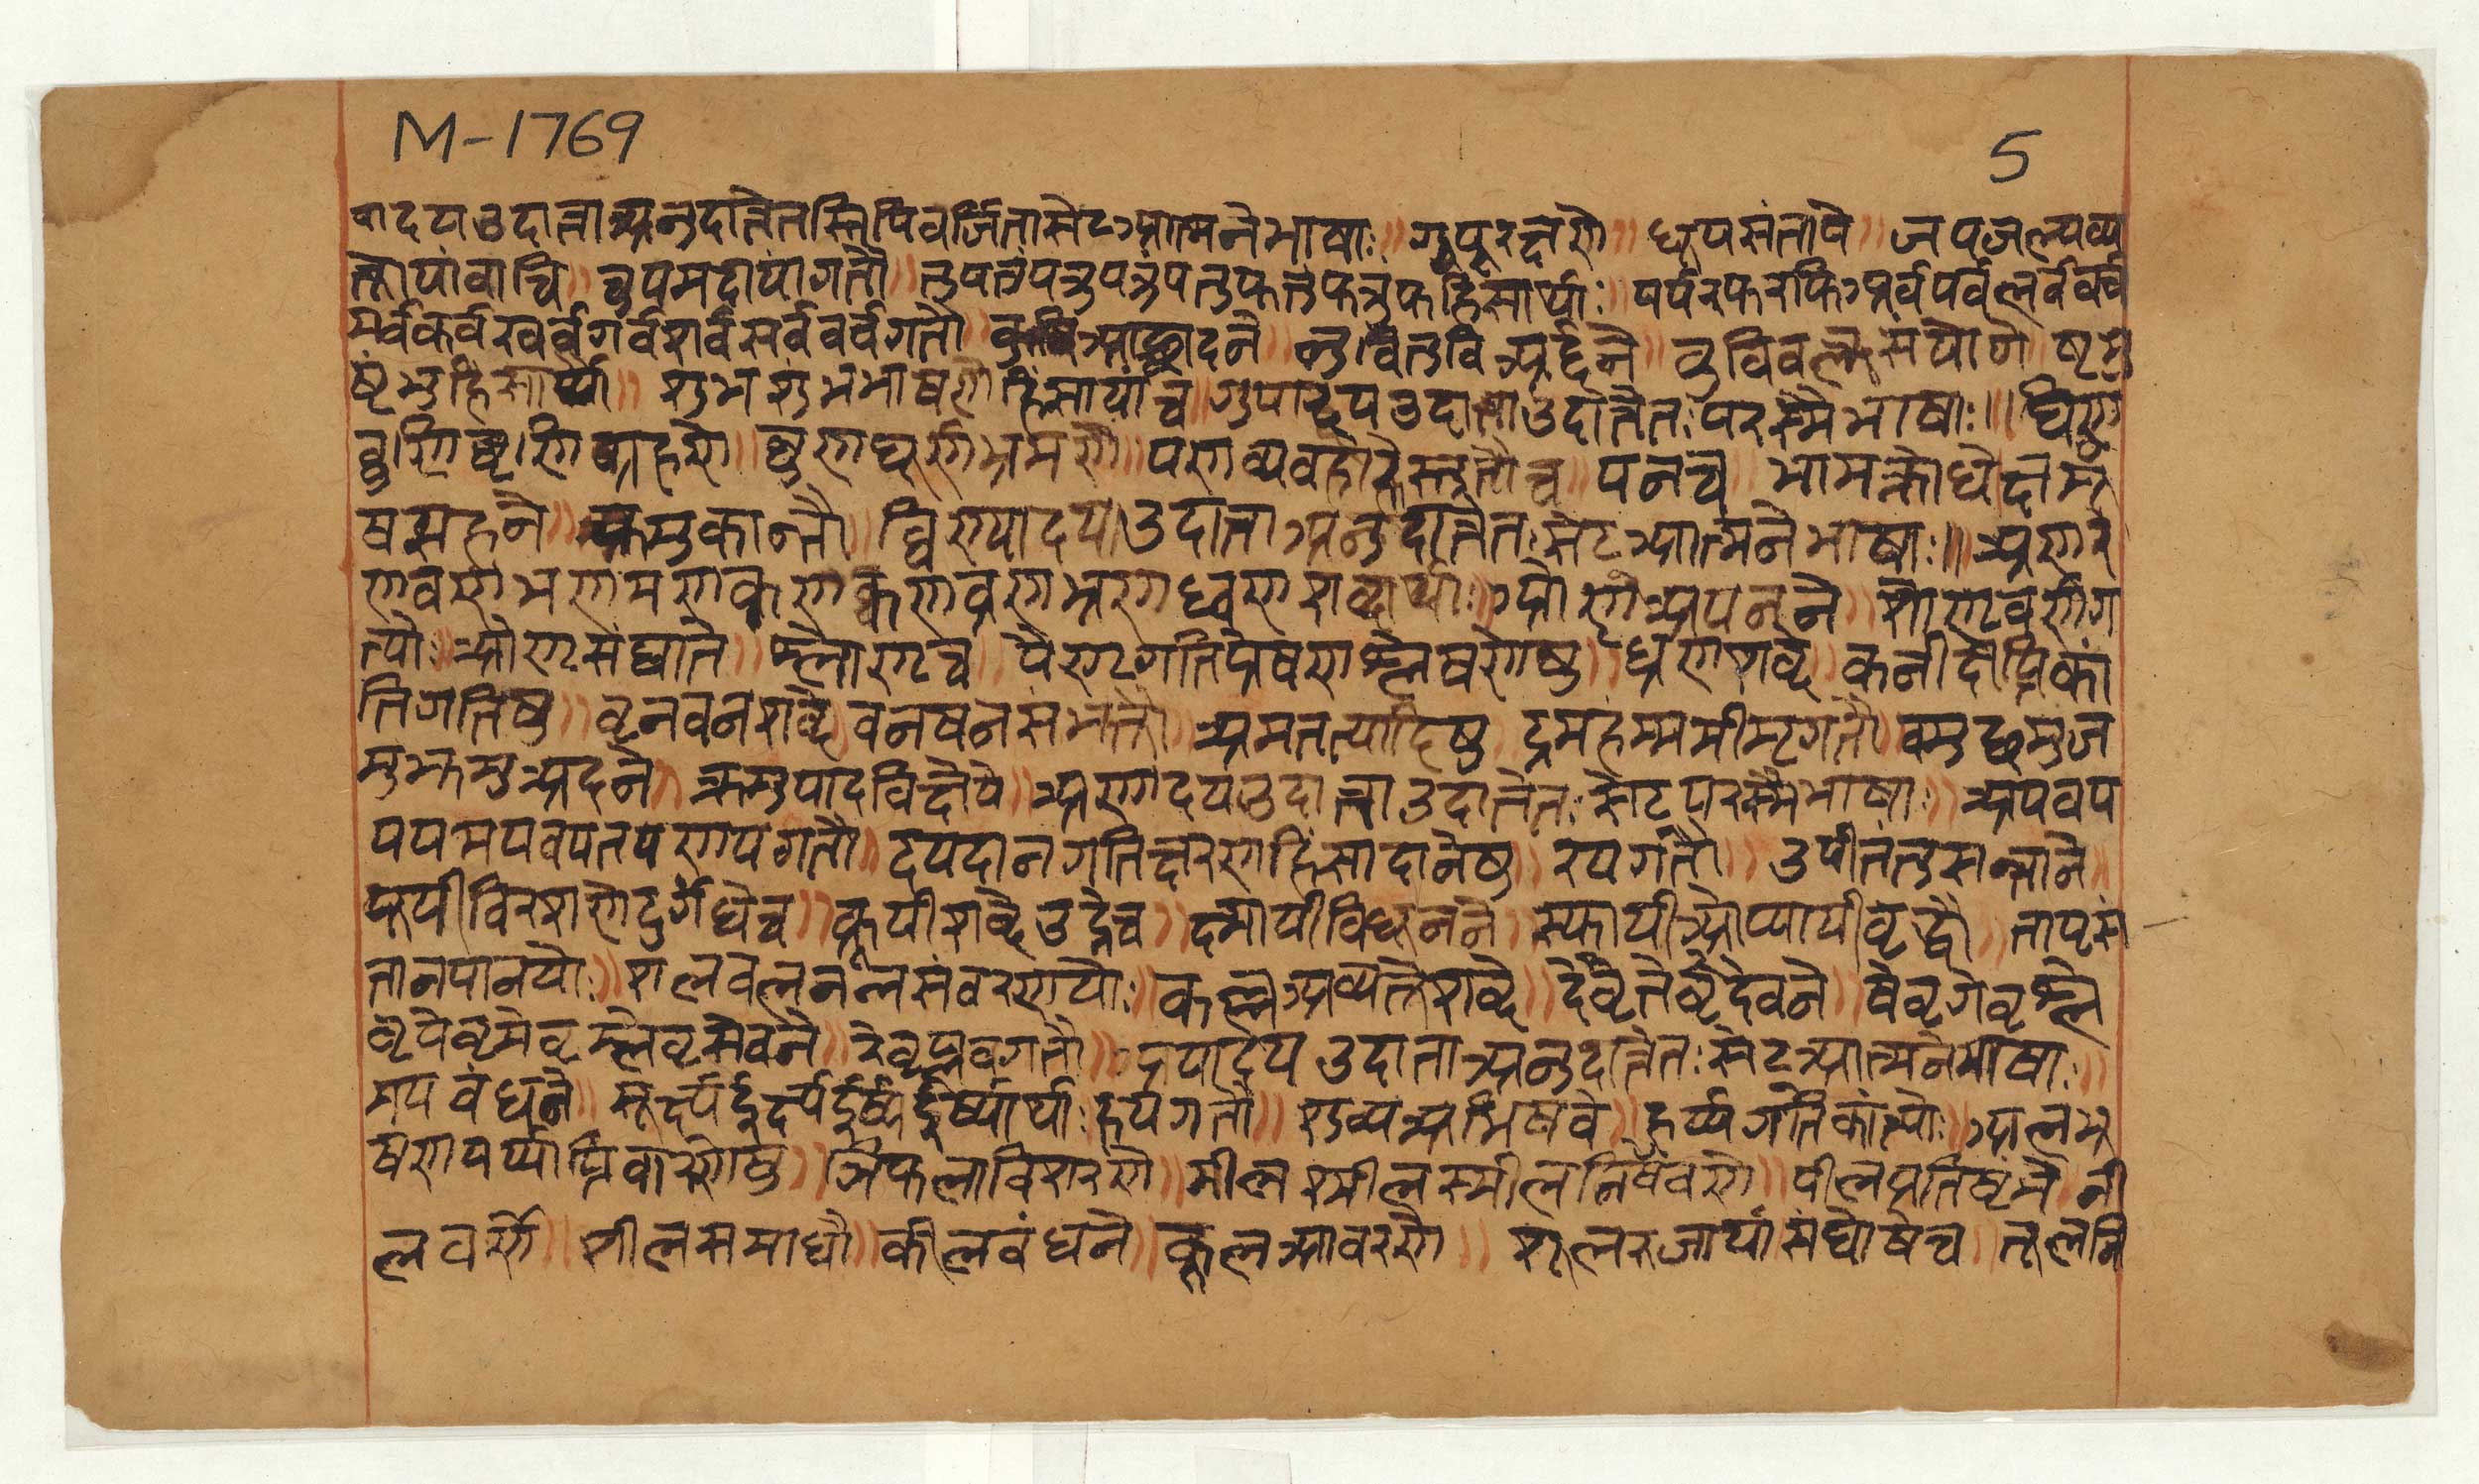 M-1769
5
पादय उदात्ता अनुदात्तेतस्तिपिवर्जिता सेट आत्मनेभाषाः ॥ गुपू रक्षणे ॥ धूप संतापे ॥ जप जल्प व्य
क्तायां वाचि ॥ चुप मंदायां गतौ ॥ तुप तुंप त्रुप त्रुंप तुफ तुंफ त्रुफ हिंसार्थाः ॥ पर्प रफ रफि अर्व पर्व लर्व वर्व
मर्व कर्व खर्व गर्व शर्व सर्व चर्व गतौ ॥ कुवि आछादने ॥ लुवि तुवि अर्द्दने ॥ चुवि वक्त्रसंयोगे ॥ षृभु
षृंभु हिंसार्थौ ॥ शुभ शुंभ भाषणे हिंसायां च ॥ गुपादय उदात्ता उदात्तेतः परस्मैभाषाः ॥ घिणि
घुणि घृणि ग्रहणे ॥ घुण घूर्ण भ्रमणे ॥ पण व्यवहारे स्तुतौ च ॥ पन च ॥ भाम क्रोधे ॥ क्षमू
ष सहने ॥ कमु कान्तौ ॥ घिण्यादय उदात्ता अनुदात्तेतः सेट आत्मनेभाषाः ॥ अण र
ण वण भण मण कण क्वण व्रण भ्रण ध्वण शब्दार्थाः ॥ ओणृ अपनयने ॥ शोणृ वर्णग
त्योः ॥ श्रोणृ संघाते ॥ श्लोणृ च ॥ पैणृ गतिप्रेषणश्लेषणेषु ॥ ध्रण शब्दे ॥ कनी दीप्तिकां
तिगतिषु ॥ ष्टन वन शब्दे ॥ वन षन संभक्तौ ॥ अम गत्यादिषु ॥ द्रम हम्म मीमृ गतौ ॥ चमु छमु ज
मु झमु अदने ॥ क्रमु पादविक्षेपे ॥ अणादय उदात्ता उदात्तेतः सेट परस्मैभाषाः ॥ अय वय
पय मय चय तय णय गतौ ॥ दय दानगतिरक्षणहिंसादानेषु ॥ रय गतौ ॥ उयी तंतुसन्ताने
पूयी विशरणे दुर्गंधे च ॥ क्नूयी शब्दे उन्दे च ॥ क्ष्मायी विधूनने ॥ स्फायी ओप्यायी वृद्धौ ॥ तायृ सं
तानपालनयोः ॥ शल चलनसंवरणयोः ॥ कल्ल अव्यक्ते शब्दे ॥ देवृ तेवृ देवने ॥ षेवृ गेवृ ग्ले
वृ पेवृ मेवृ म्लेवृ सेवने ॥ रेवृ प्लवगतौ ॥ अयादय उदात्ता अनुदात्तेतः सेट आत्मनेभाषाः ॥
मव्य बंधने ॥ सूर्क्ष्य ईर्क्ष्य ईर्ष्य ईर्ष्यार्थाः ॥ हय गतौ ॥ शुच्य अभिषवे ॥ हर्य्य गतिकांत्योः ॥ अल भू
षणपर्य्याप्तिवारणेषु ॥ ञिफला विशरणे ॥ मील श्मील स्मील निमेषणे ॥ पील प्रतिष्टंभे ॥ नी
ल वर्णे ॥ शील समाधौ ॥ कील बंधने ॥ कूल आवरणे ॥ शूल रुजायां संघोषे च ॥ तूल नि